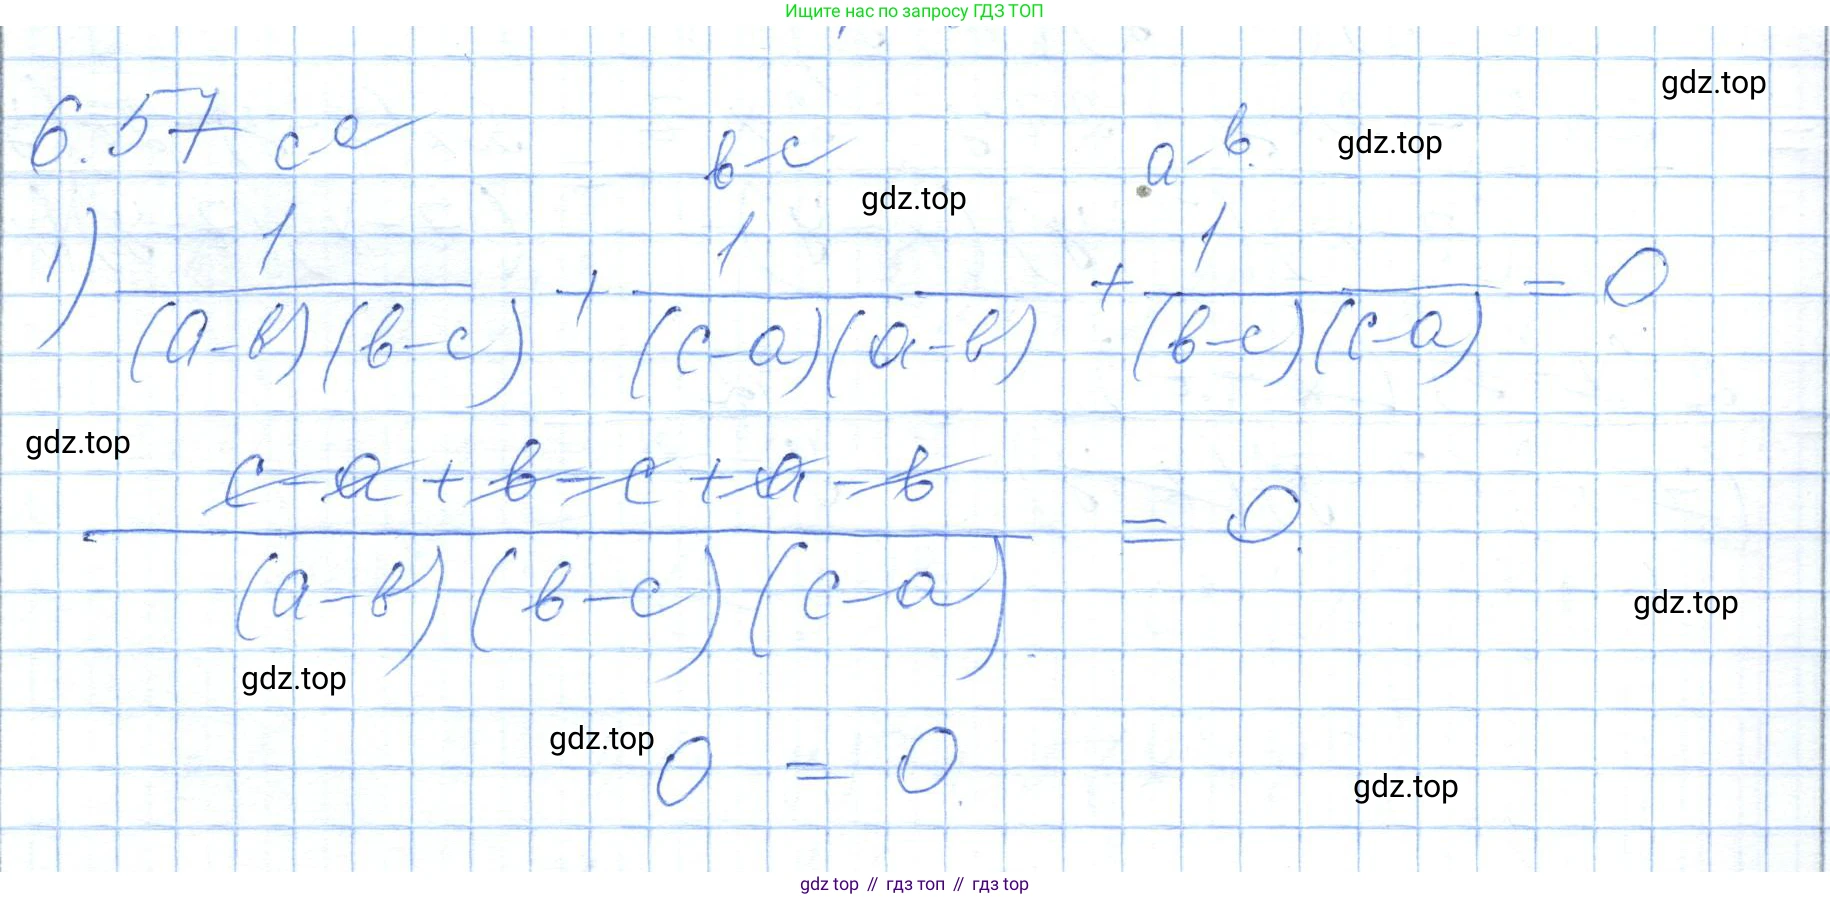 Ищите нас по запросу ГДЗ ТОП
gdz.top
6.57 c-a b-c a-b
gdz.top
gdz.top
1) 1/((a-b)(b-c)) + 1/((c-a)(a-b)) + 1/((b-c)(c-a)) = 0
gdz.top
(c-a+b-c+a-b)/((a-b)(b-c)(c-a)) = 0
gdz.top
gdz.top
gdz.top
0 = 0
gdz.top
gdz top // гдз топ // гдз top